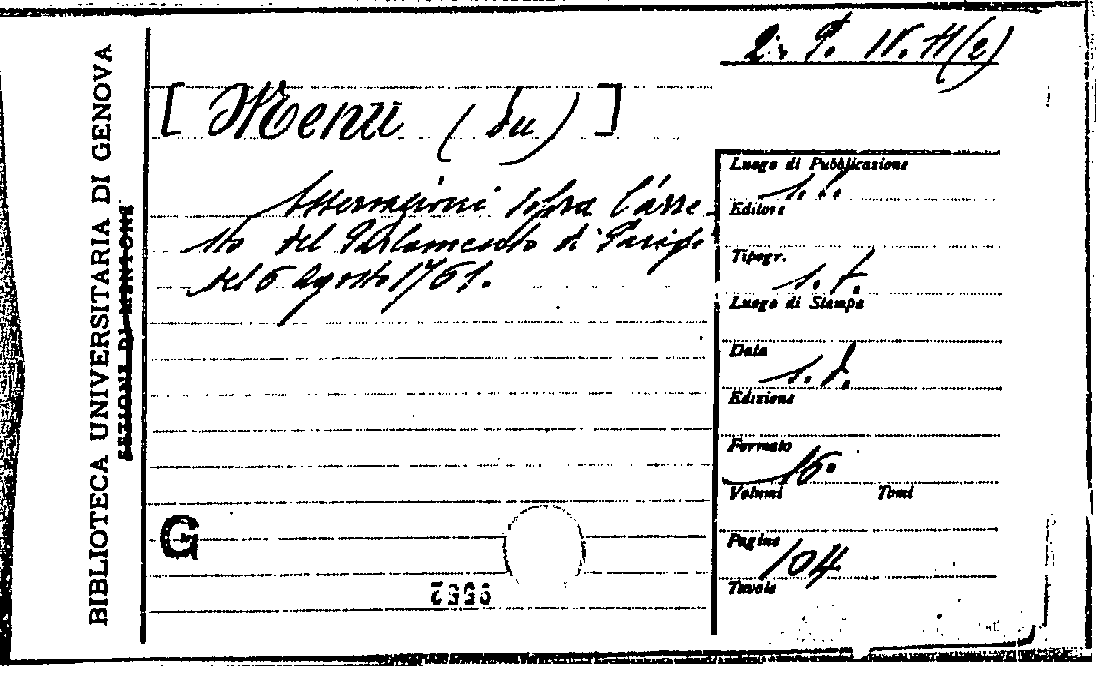 2. P. IV. 11(2)
BIBLIOTECA UNIVERSITARIA DI GENOVA
SEZIONE DI MENTONE
[Menu (du)]
Osservazioni sopra l'arre-
sto del Parlamento di Parigi
del 6 Agosto 1761.
Luogo di Pubblicazione
s. l.
Editore
Tipogr.
s. t.
Luogo di Stampa
Data
s. d.
Edizione
Formato
16°
Volumi Tomi
Pagine
104
Tavole
G